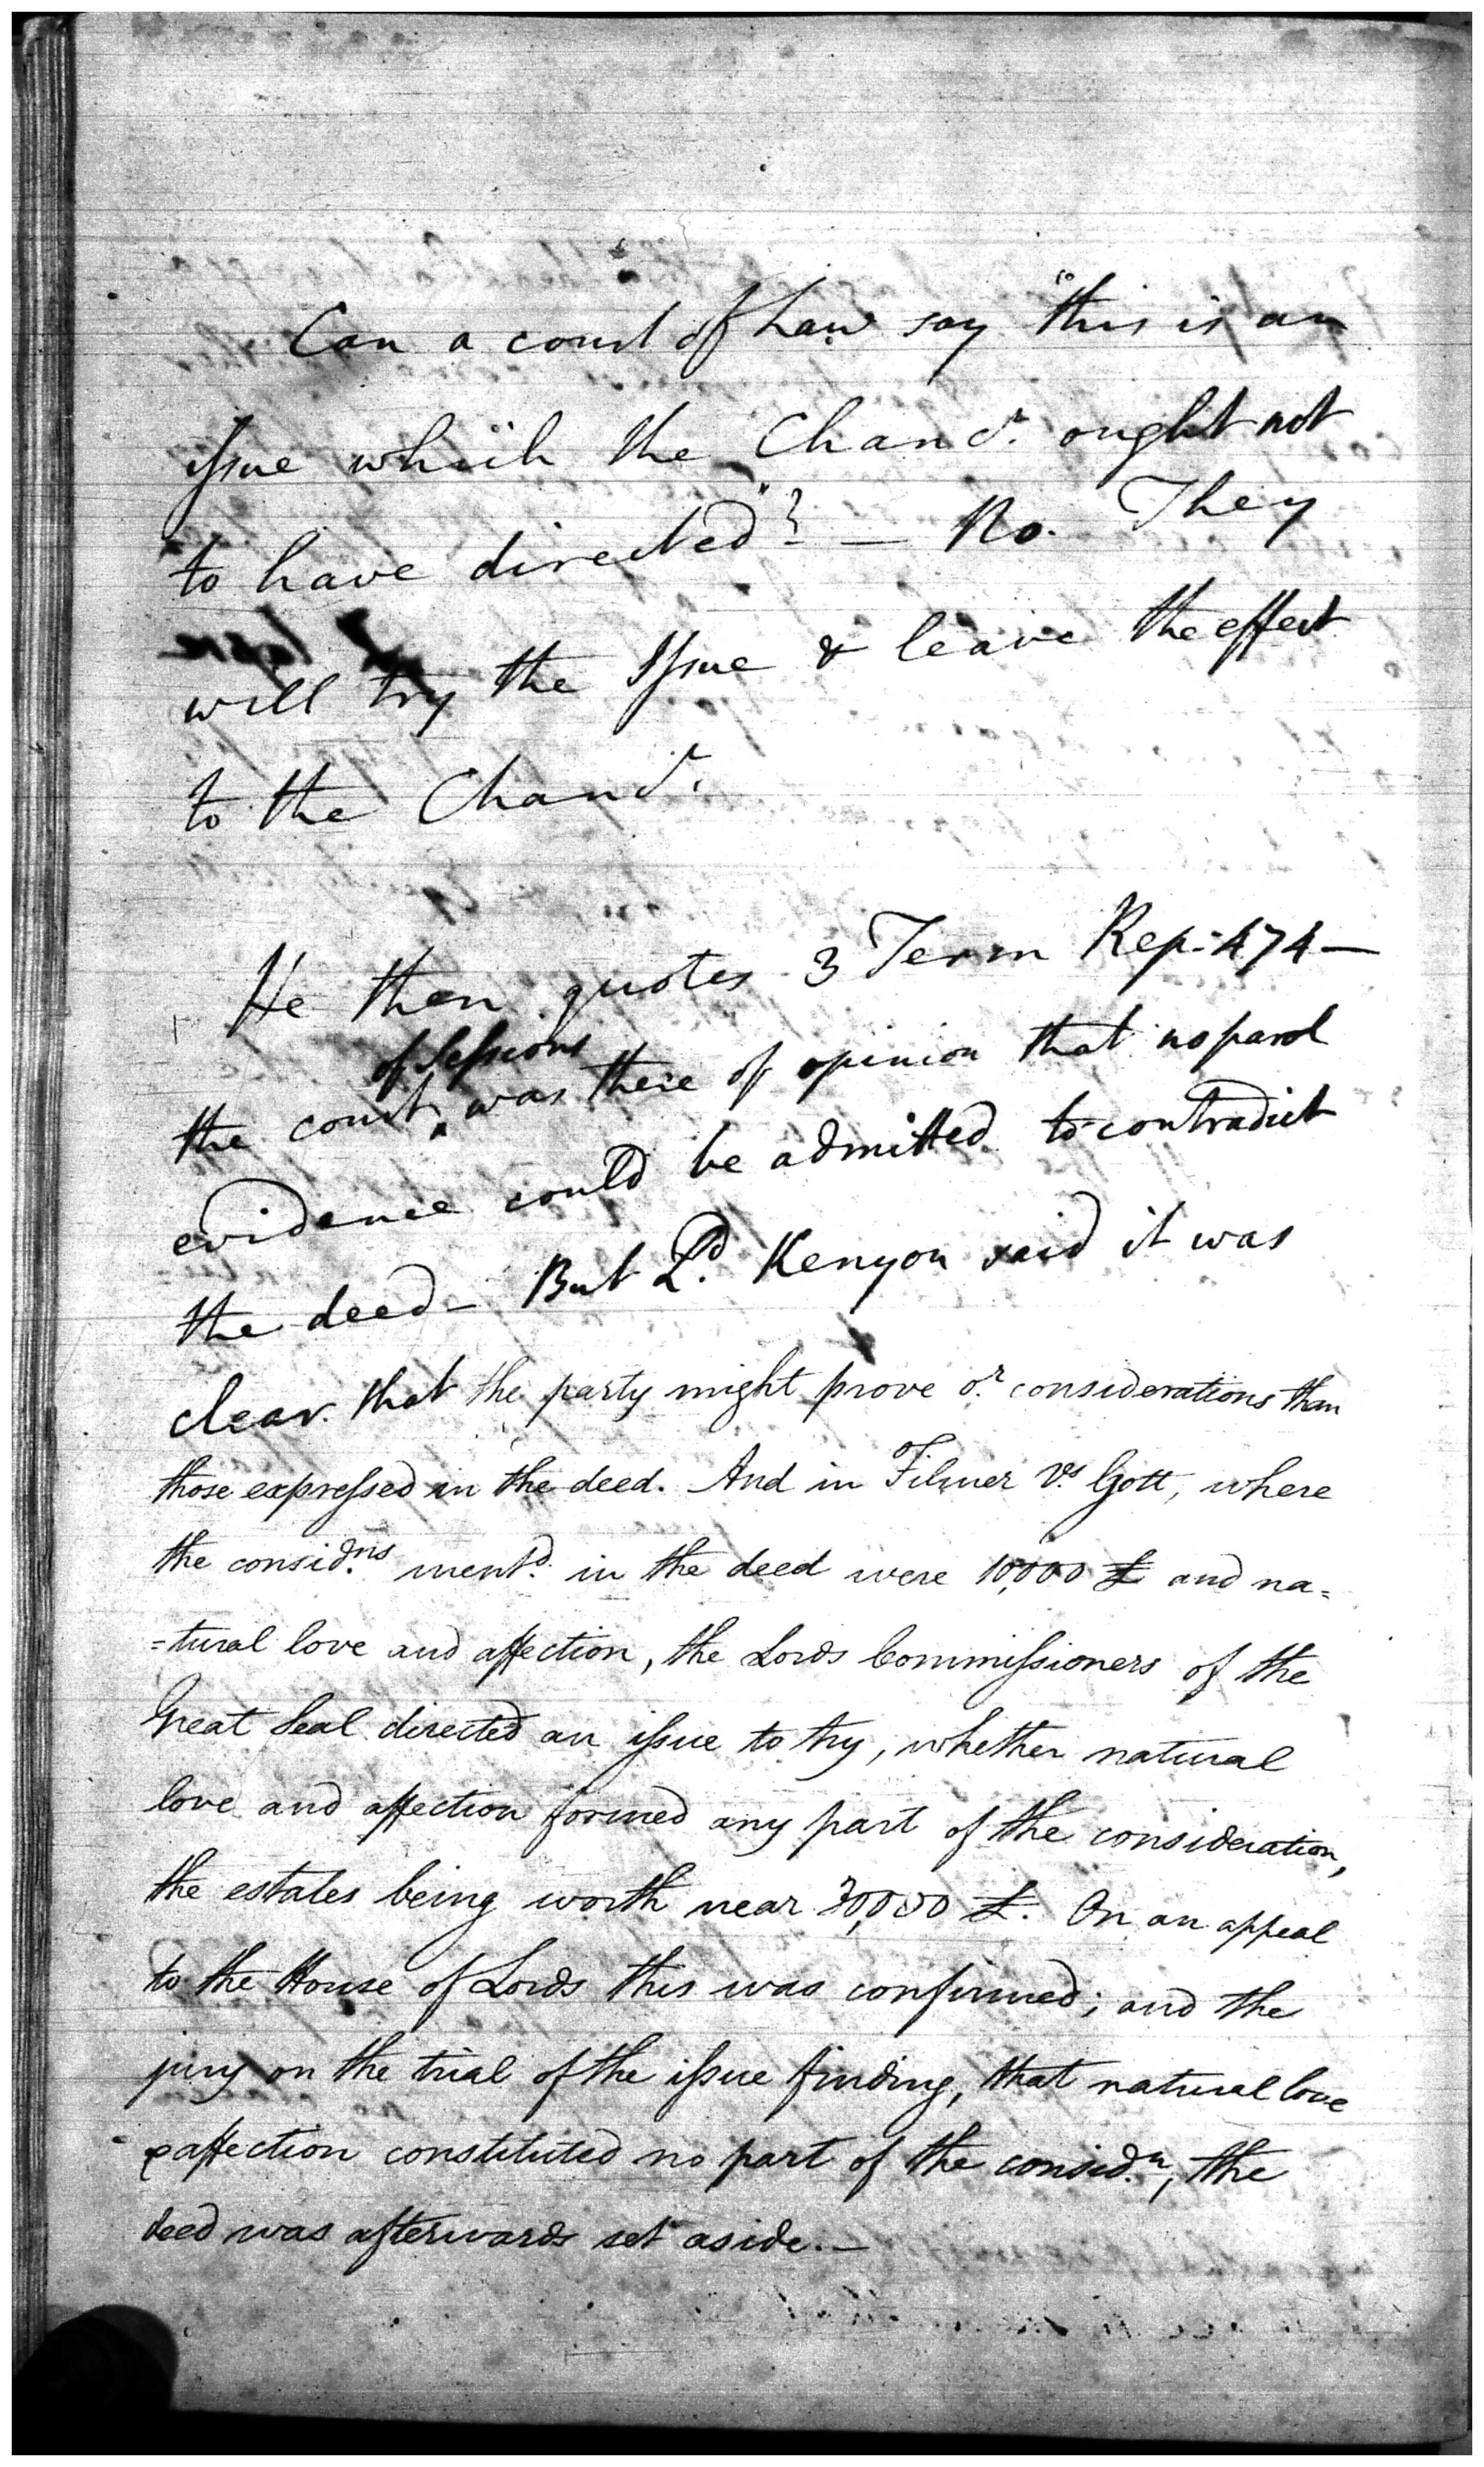 Can a court of Law say "this is an
issue which the Chancr. ought not
to have directed"? — No. They
will try the Issue & leave the effect
to the Chancr.
He then quotes 3 Term Rep: 474 —
of Sessions
the court ‸ was there of opinion that no parol
evidence could be admitted to contradict
the deed — But Ld. Kenyon said it was
clear that the party might prove or. considerations than
those expressed in the deed. And in Filmer Vs. Gott, where
the considns. mentd. in the deed were 10,000 £ and na=
=tural love and affection, the Lords Commissioners of the
Great Seal directed an issue to try, whether natural
love and affection formed any part of the consideration,
the estates being worth near 30,000 £. On an appeal
to the House of Lords this was confirmed; and the
jury on the trial of the issue finding, that natural love
& affection constituted no part of the considn., the
deed was afterwards set aside. —